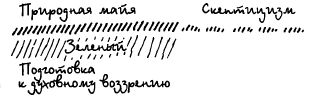 Природная майя Скептицизм
Зеленый
Подготовка
к духовному воззрению